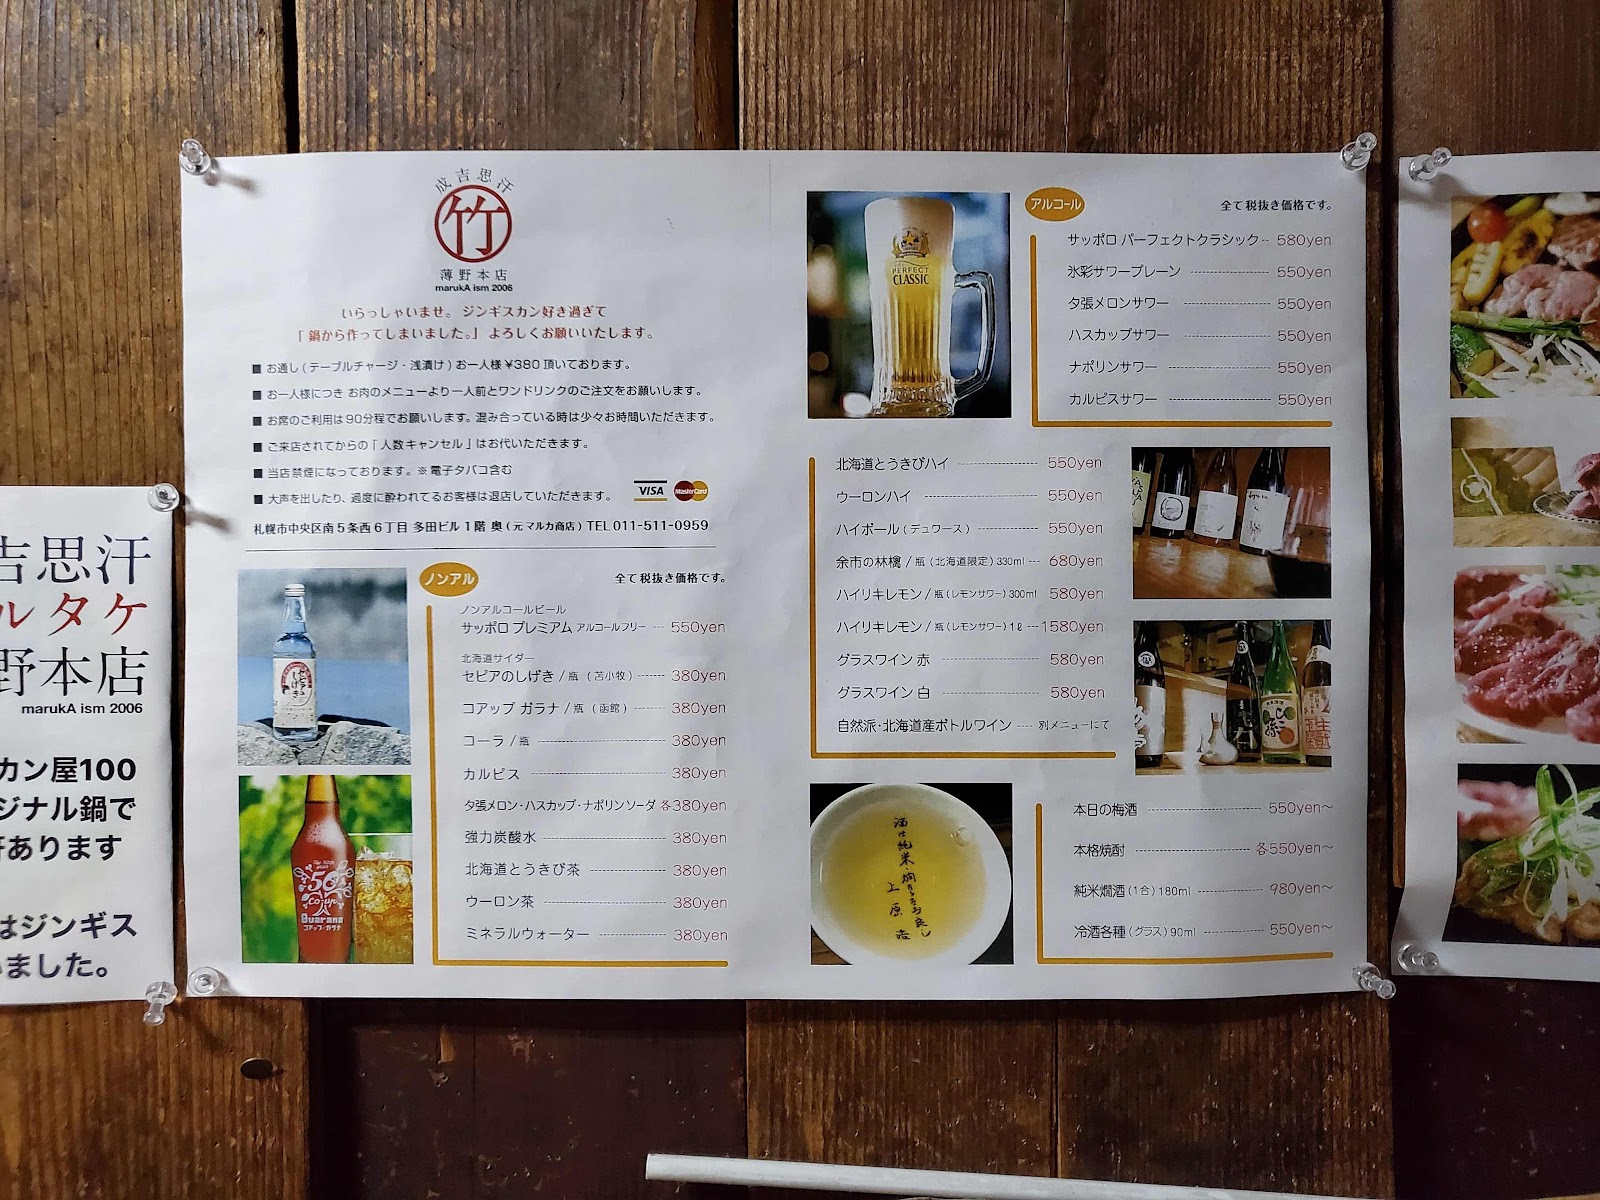 成吉思汗
竹
薄野本店
marukA ism 2006
いらっしゃいませ。 ジンギスカン好き過ぎて
「 鍋から作ってしまいました。」 よろしくお願いいたします。
■ お通し ( テーブルチャージ・浅漬け ) お一人様 ¥380 頂いております。
■ お一人様につき お肉のメニューより一人前とワンドリンクのご注文をお願いします。
■ お席のご利用は90分程でお願いします。混み合っている時は少々お時間いただきます。
■ ご来店されてからの「 人数キャンセル 」はお代いただきます。
■ 当店禁煙になっております。※ 電子タバコ含む
■ 大声を出したり、過度に酔われてるお客様は退店していただきます。
VISA MasterCard
札幌市中央区南5条西6丁目 多田ビル1階 奥 ( 元 マルカ商店 ) TEL 011-511-0959
ノンアル
全て 税抜き価格です。
ノンアルコールビール
サッポロ プレミアム アルコールフリー --- 550yen
北海道サイダー
セピアのしげき / 瓶 ( 苫小牧 ) 380yen
コアップ ガラナ / 瓶 ( 函館 ) 380yen
コーラ / 瓶 380yen
カルピス 380yen
夕張メロン・ハスカップ・ナポリンソーダ 各380yen
強力炭酸水 380yen
北海道とうきび茶 380yen
ウーロン茶 380yen
ミネラルウォーター 380yen
セピアの
しげき
50
co-up
Guarana
コアップ・ガラナ
PERFECT
CLASSIC
アルコール
全て 税抜き価格です。
サッポロ パーフェクトクラシック -- 580yen
氷彩サワープレーン 550yen
夕張メロンサワー 550yen
ハスカップサワー 550yen
ナポリンサワー 550yen
カルピスサワー 550yen
北海道とうきびハイ 550yen
ウーロンハイ 550yen
ハイボール ( デュワース ) 550yen
余市の林檎 / 瓶 ( 北海道限定 ) 330ml --- 680yen
ハイリキレモン / 瓶 ( レモンサワー ) 300ml 580yen
ハイリキレモン / 瓶 ( レモンサワー ) 1ℓ --- 1580yen
グラスワイン 赤 580yen
グラスワイン 白 580yen
自然派・北海道産ボトルワイン ---- 別メニューにて
酒は純米、燗ならなお良し
上原 浩
本日の梅酒 550yen〜
本格焼酎 各550yen〜
純米燗酒 (1合) 180ml 980yen〜
冷酒各種 ( グラス ) 90ml 550yen〜
吉思汗
ルタケ
野本店
marukA ism 2006
カン屋100
ジナル鍋で
あります
はジンギス
いました。